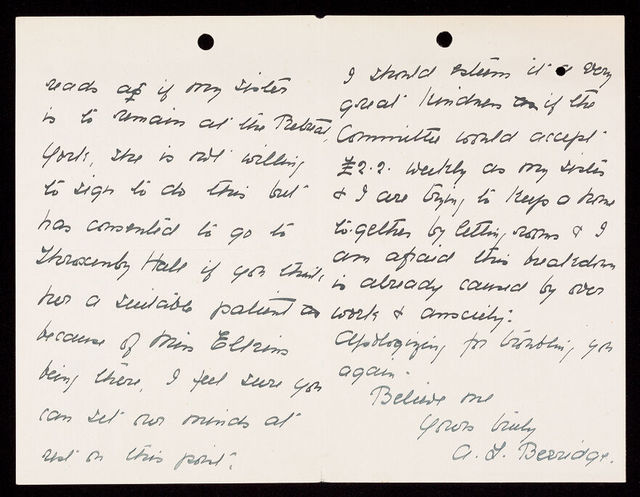 reads as if my sister
is to remain at the Retreat,
York, she is not willing
to sign to do this but
has consented to go to
Throxenby Hall if you think
her a suitable patient
because of Miss Elkins
being there. I feel sure you
can set our minds at
rest on this point.
I should esteem it a very
great kindness if the
Committee would accept
£2.2. weekly as my sister
& I are trying to keep a home
together by letting rooms & I
am afraid this breakdown
is already caused by over
work & anxiety.
Apologizing for troubling you
again.
Believe me
Yours truly
A. L. Berridge.